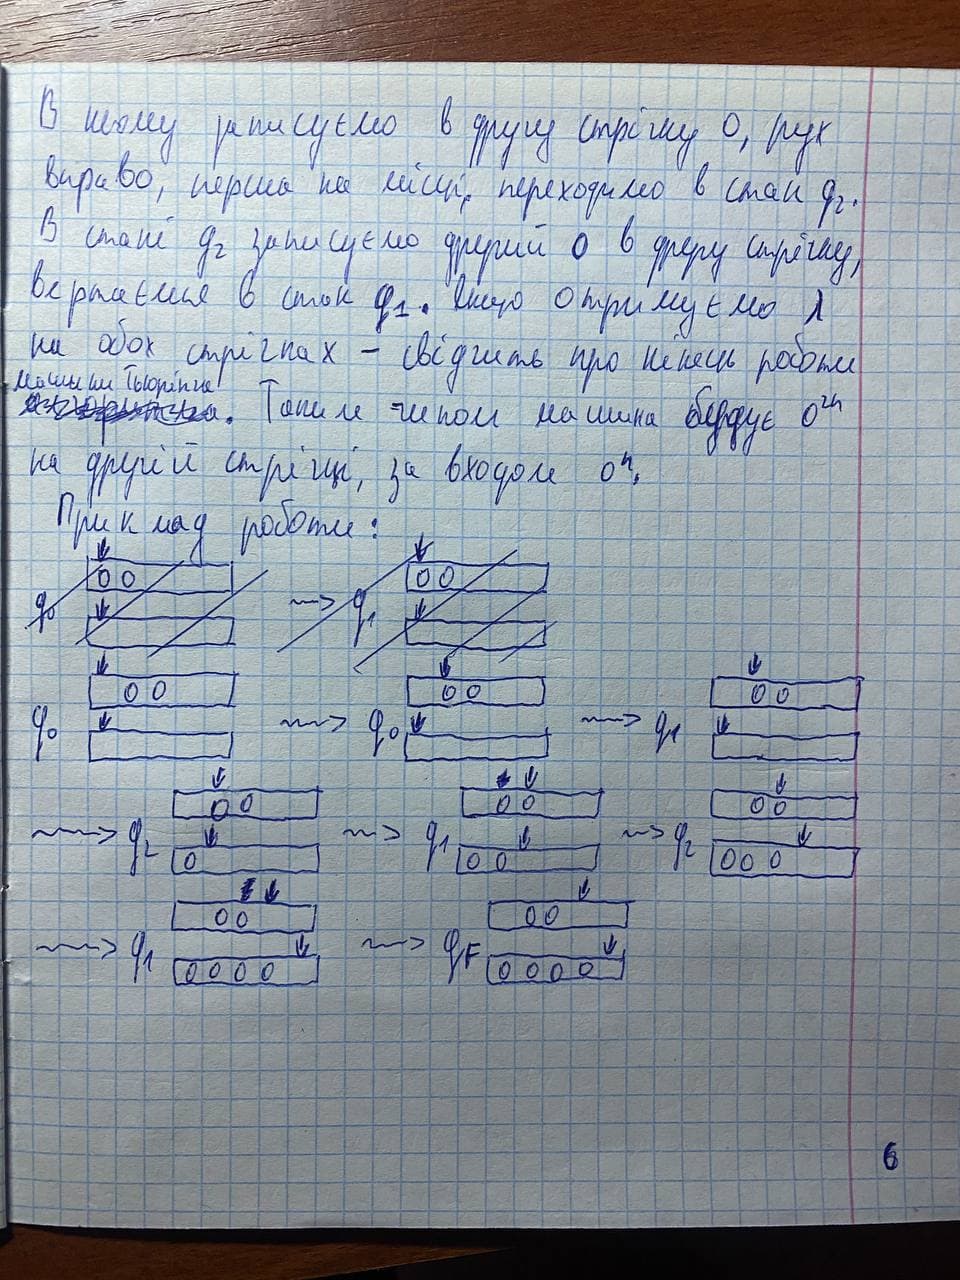 В ньому записуємо в другу стрічку 0, рух
вправо, перша на місці, переходимо в стан q₂.
В стані q₂ записуємо другий 0 в другу стрічку,
вертаємся в стан q₁. Якщо отримуємо λ
на обох стрічках – свідчить про кінець роботи
машини Тьюрінга
. Таким чином машина будує 0²ⁿ
на другій стрічці, за входом 0ⁿ.
Приклад роботи:
q₀ 0 0 ⇝ q₁ 0 0
q₀ 0 0 ⇝ q₀ 0 0 ⇝ q₁ 0 0
⇝ q₂ 0 0 0 ⇝ q₁ 0 0 0 0 ⇝ q₂ 0 0 0 0 0
⇝ q₁ 0 0 0 0 0 0 ⇝ qF 0 0 0 0 0 0
6